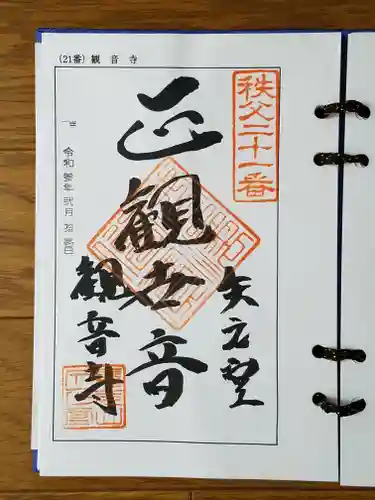 (21番) 観音寺
秩父二十一番
正観世音
矢之堂
観音寺
令和 年 弐月